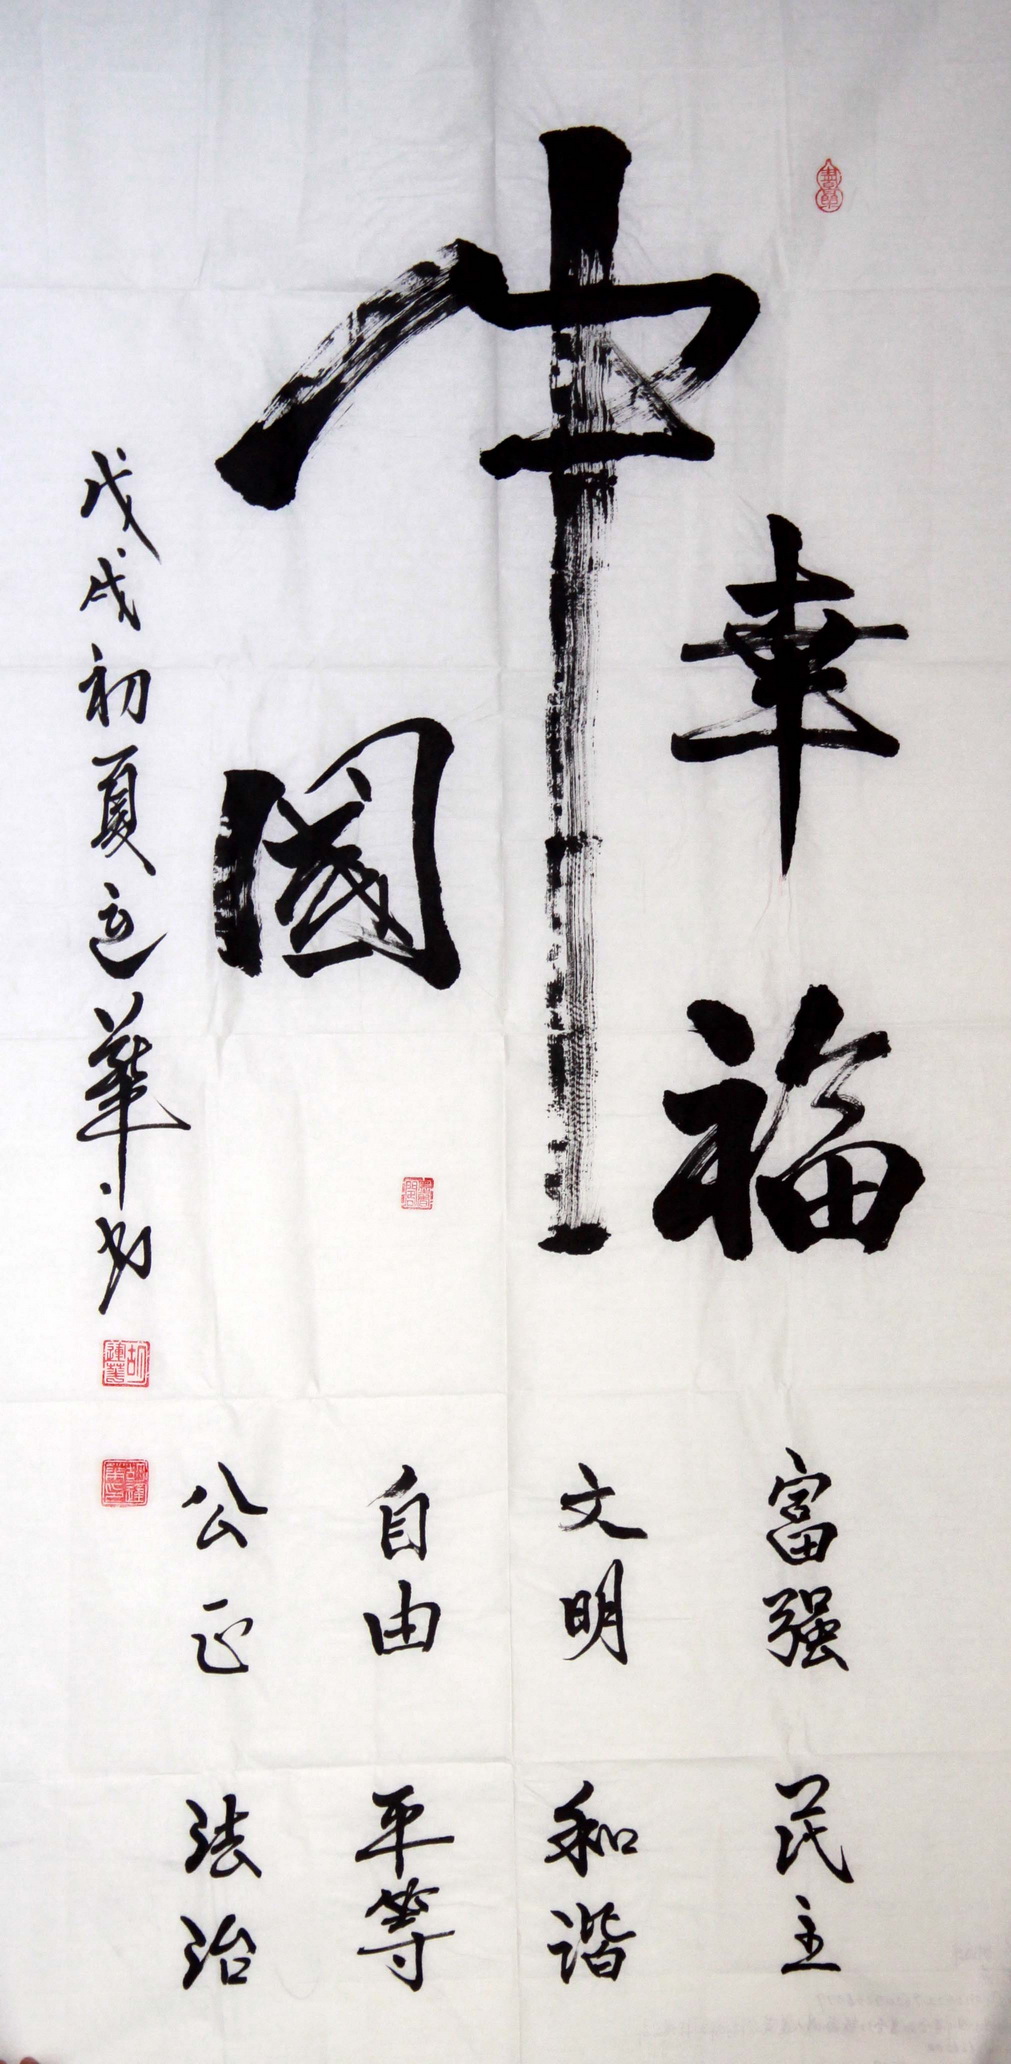 中
華福
國
富强 民主
文明 和谐
自由 平等
公正 法治
戊戌初夏运華书
胡運華